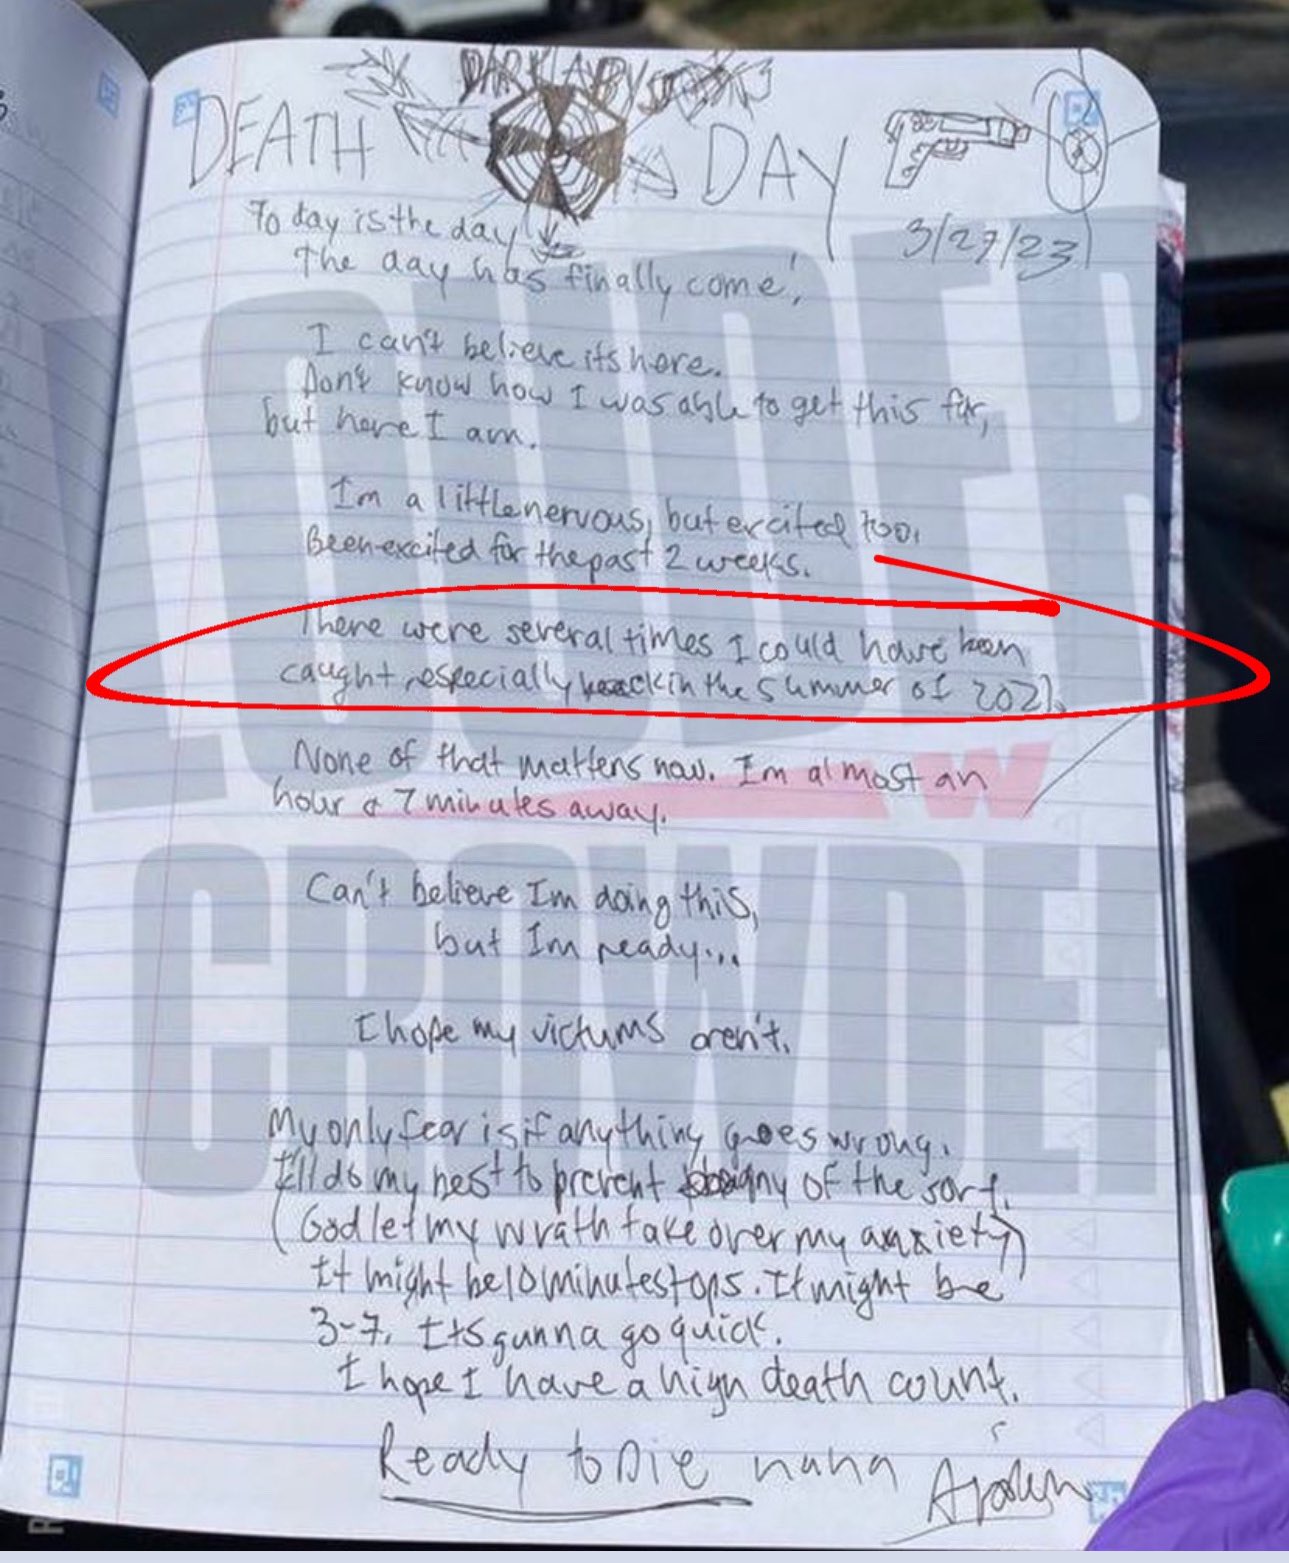 DARK ABYSS
DEATH DAY
3/27/23
Today is the day!
The day has finally come!
I can't believe its here.
Don't know how I was able to get this far,
but here I am.
I'm a little nervous, but excited too.
Been excited for the past 2 weeks.
There were several times I could have been
caught, especially back in the summer of 2021.
None of that matters now. Im almost an
hour & 7 minutes away.
Can't believe Im doing this,
but Im ready...
I hope my victums aren't.
My only fear is if anything goes wrong.
I'll do my best to prevent any of the sort.
(God let my wrath take over my anxiety)
It might be 10 minutes tops. It might be
3-7. Its gunna go quick.
I hope I have a high death count.
Ready to Die haha
LOUDER
W
CROWDER